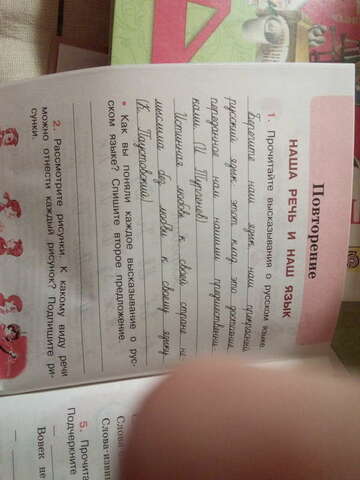 Повторение
НАША РЕЧЬ И НАШ ЯЗЫК
1. Прочитайте высказывания о русском языке.
Берегите наш язык, наш прекрасный
русский язык, этот клад, это достояние,
переданное нам нашими предшественни-
ками. (И. Тургенев)
Истинная любовь к своей стране не-
мыслима без любви к своему языку.
(К. Паустовский)
• Как вы поняли каждое высказывание о рус-
ском языке? Спишите второе предложение.
2. Рассмотрите рисунки. К какому виду речи
можно отнести каждый рисунок? Подпишите ри-
сунки.
5. Прочита
Подчеркните
Слова-изви
Вовек не